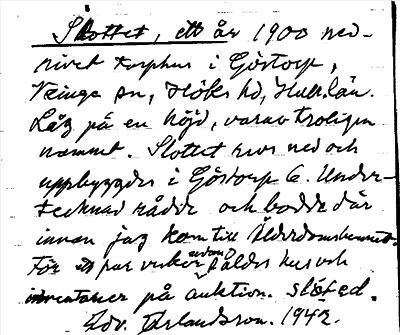 Slottet, ett år 1900 ned-
rivet torphus i Göstorp,
Veinge sn, Höks hd, Hall.län.
Låg på en höjd, varav troligen
namnet. Slottet revs ned och
uppbyggdes i Göstorp 6. Under-
tecknad rådde och bodde där
innan jag kom till Ålderdomshemmet.
För ett par veckor sedan såldes hus och
inventarier på auktion. slöted.
Edv. Erlandsson. 1942.